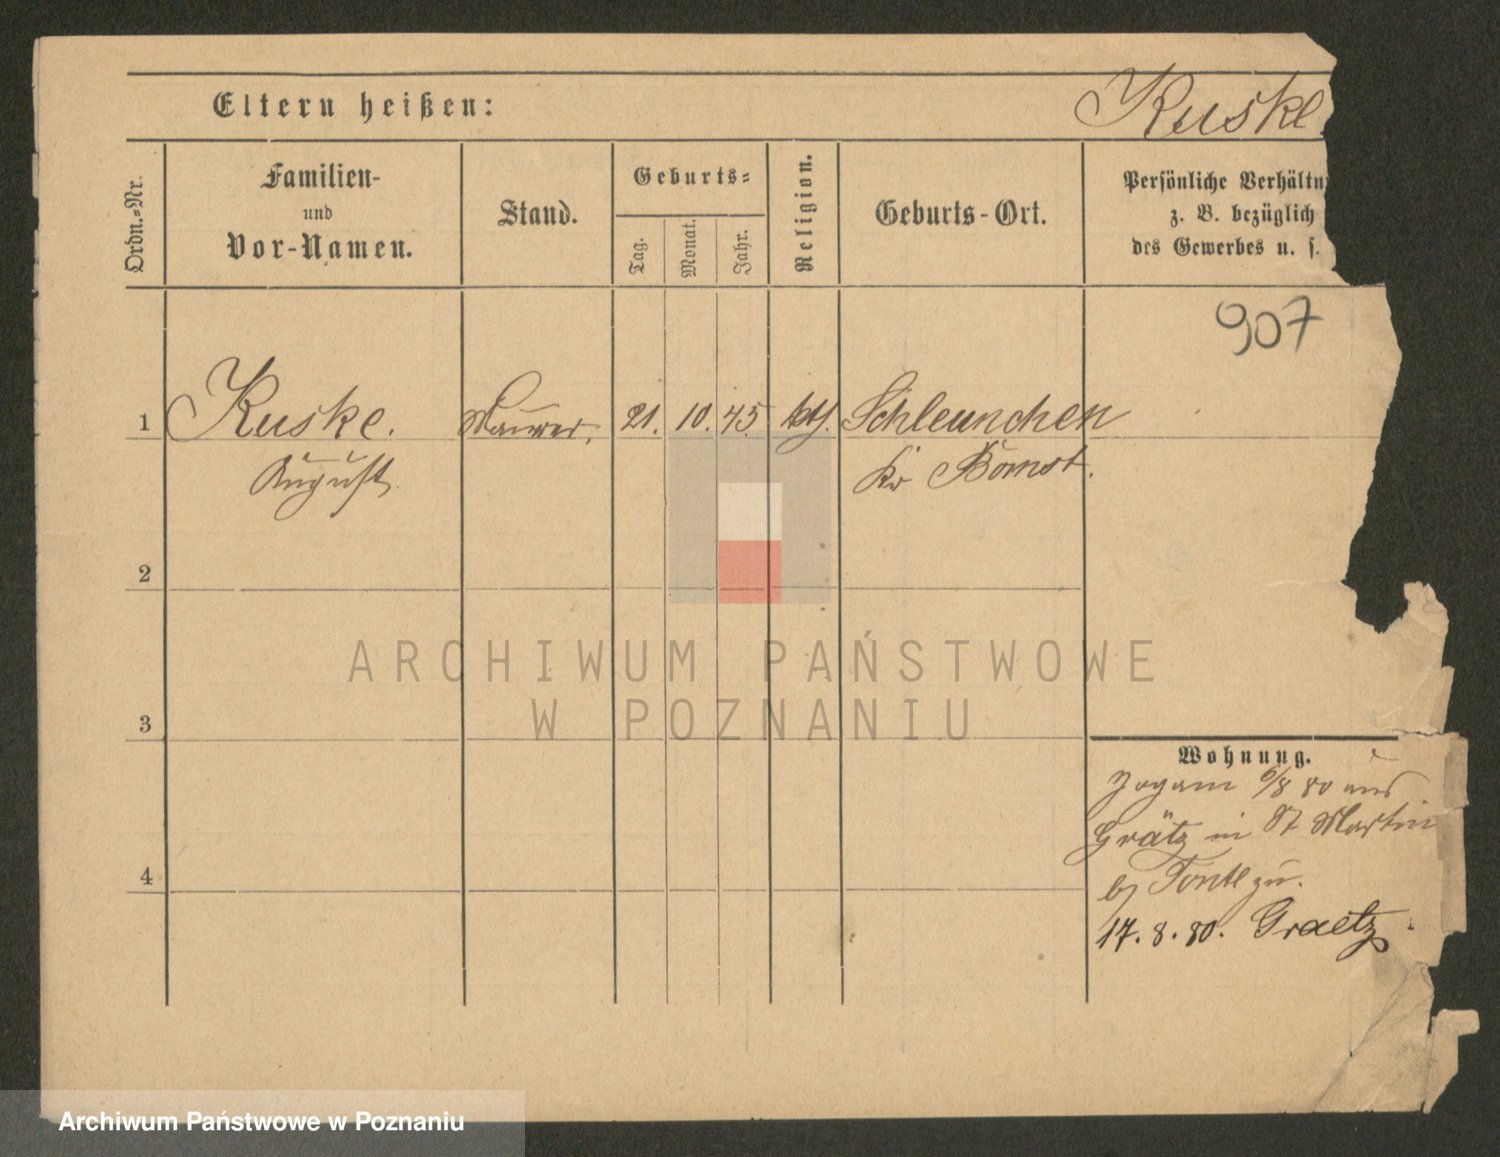 Eltern heißen:
Kuske
Ordn.-Nr.
Familien-
und
Vor-Namen.
Stand.
Geburts-
Tag.
Monat.
Jahr.
Religion.
Geburts-Ort.
Persönliche Verhältn
z. B. bezüglich
des Gewerbes u. s.
907
1
Kuske. Maurer. 21. 10. 45 Schleunchen
August Kr Bomst.
2
3
4
Wohnung.
6/8 80 aus
Grätz in St Martin
zu.
17. 8. 80. Graetz.
ARCHIWUM PAŃSTWOWE
W POZNANIU
Archiwum Państwowe w Poznaniu